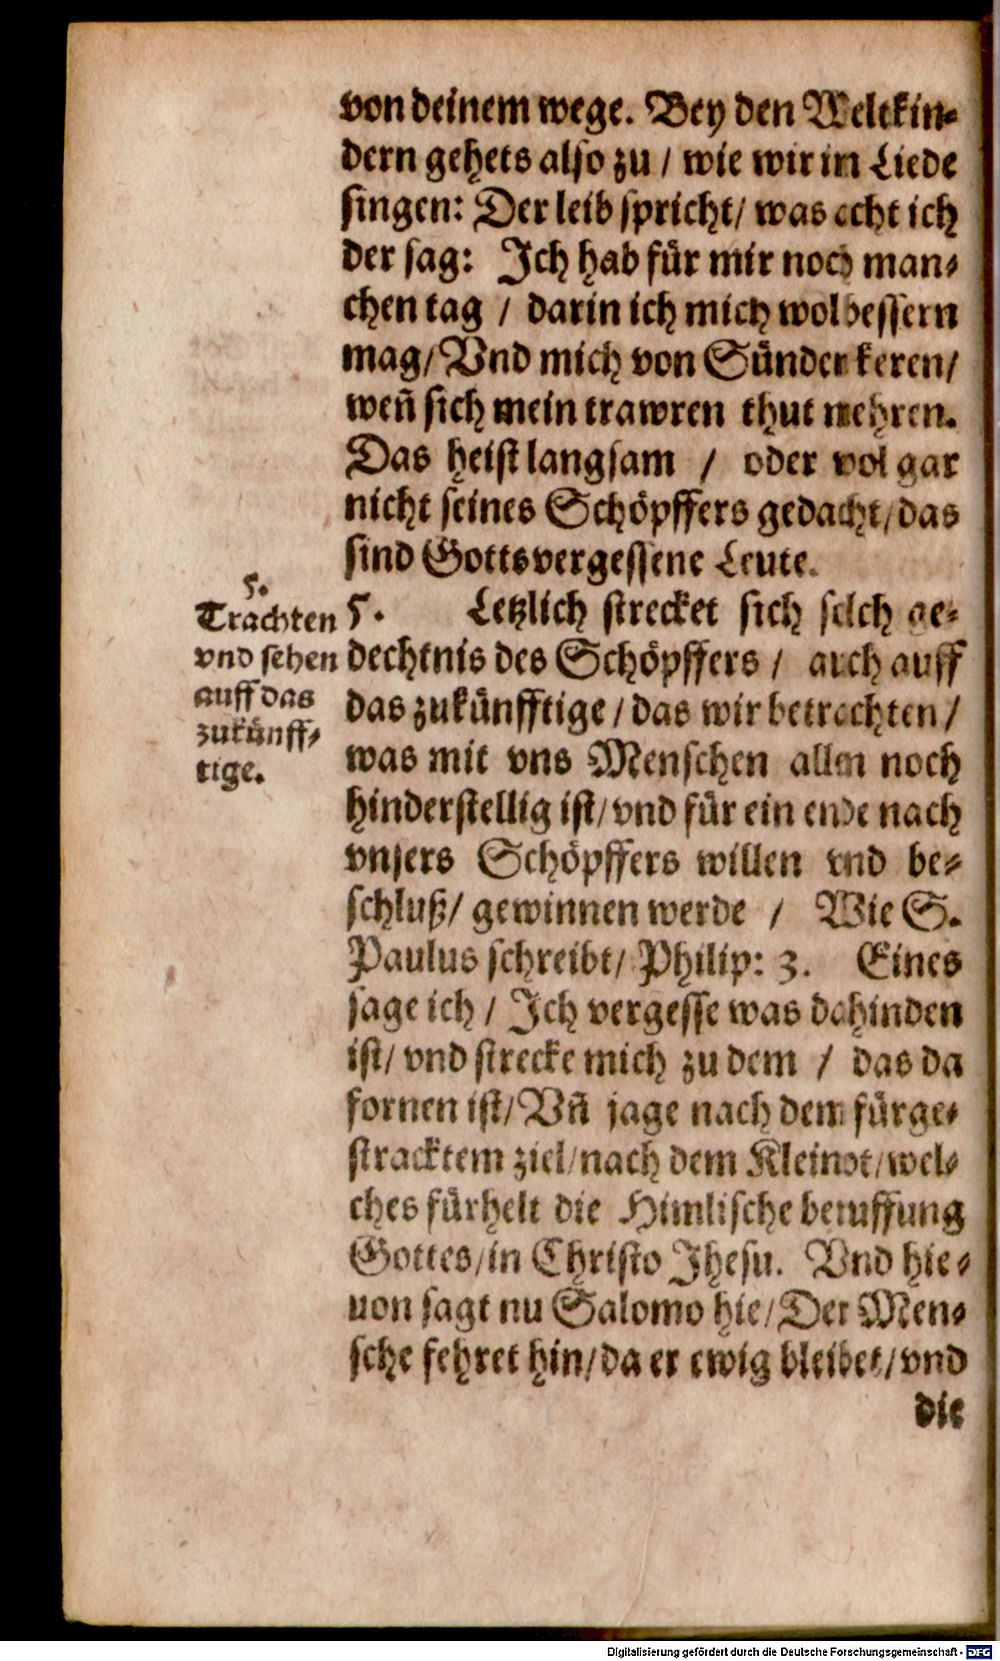 von deinem wege. Bey den Weltkin-
dern gehets also zu / wie wir im Liede
singen: Der leib spricht/ was acht ich
der sag: Ich hab für mir noch man-
chen tag / darin ich mich wol bessern
mag/ Vnd mich von Sünden keren/
weñ sich mein trawren thut mehren.
Das heist langsam / oder wol gar
nicht seines Schöpffers gedacht/ das
sind Gottsvergessene Leute.
5.
Trachten
vnd sehen
auff das
zukünff-
tige.
5. Letzlich strecket sich solch ge-
dechtnis des Schöpffers / auch auff
das zukünfftige / das wir betrachten /
was mit vns Menschen allen noch
hinderstellig ist/ vnd für ein ende nach
vnsers Schöpffers willen vnd be-
schluß/ gewinnen werde / Wie S.
Paulus schreibt/ Philip: 3. Eines
sage ich / Ich vergesse was dahinden
ist/ vnd strecke mich zu dem / das da
fornen ist/ Vñ jage nach dem fürge-
stracktem ziel/ nach dem Kleinot/ wel-
ches fürhelt die Himlische beruffung
Gottes/ in Christo Jhesu. Vnd hie-
uon sagt nu Salomo hie/ Der Men-
sche fehret hin/ da er ewig bleibet/ vnd
die
Digitalisierung gefördert durch die Deutsche Forschungsgemeinschaft - DFG